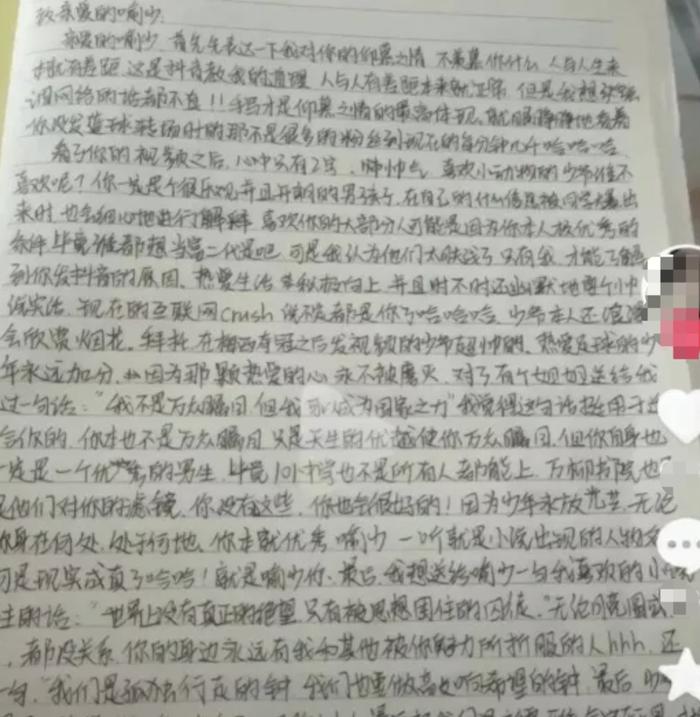 致亲爱的喻少
亲爱的喻少，首先先表达一下我对你的仰慕之情，不羡慕你什么，人与人生来
就有差距，这是抖音教我的道理，人与人有差距本来就正常，但是我想说
网络的话都不直！！手写才是仰慕之情的最高体现，就
你没发篮球转场时的那不是很多的粉丝到现在的每分钟几千哈哈哈
看了你的视频之后，心中只有2字，帅帅气，喜欢小动物的少年谁不
喜欢呢？你一定是个很乐观并且开朗的男孩子，在自己的什么信息被同学爆出
来时，也会细心地进行了解释，喜欢你的大部分人可能是因为你本人极优秀的
条件，毕竟谁都想当富二代是吧，可是我认为他们太肤浅了，只有我，才能了解
到你发抖音的原因，热爱生活，积极向上，并且时不时还幽默地整个小
诚实话，现在的互联网crush说不定都是你了哈哈哈，少爷本人还
会欣赏烟花，拜托，在梅西夺冠之后发视频的少爷超帅的，热爱足球的少
年永远加分，因为那颗热爱的心，永不被磨灭，对了有个姐姐送给我
过一句话："我不是万众瞩目，但我可以成为国家之力"我觉得这句话挺用于
你的，你本也不是万众瞩目，只是天生的优越使你万众瞩目，但你自身也
一定是一个优秀的男生，毕竟101中学也不是所有人都能上，万柳书院也
是他们对你的滤镜，你没有这些，你也会很好的！因为少年永放光芒，无论
你身在何处，处于何地，你本就优秀，喻少一听就是小说出现的人物
可是现实成真了哈哈！就是喻少你，最后，我想送给喻少一句我喜欢的小
生的话："世界上没有真正的绝望，只有被思想困住的囚徒。"无论
，都没关系，你的身边永远有我和其他被你魅力所折服的人hhh，还
一句，"我们是孤独行走的钟，我们也要做高处响希望的钟，最后